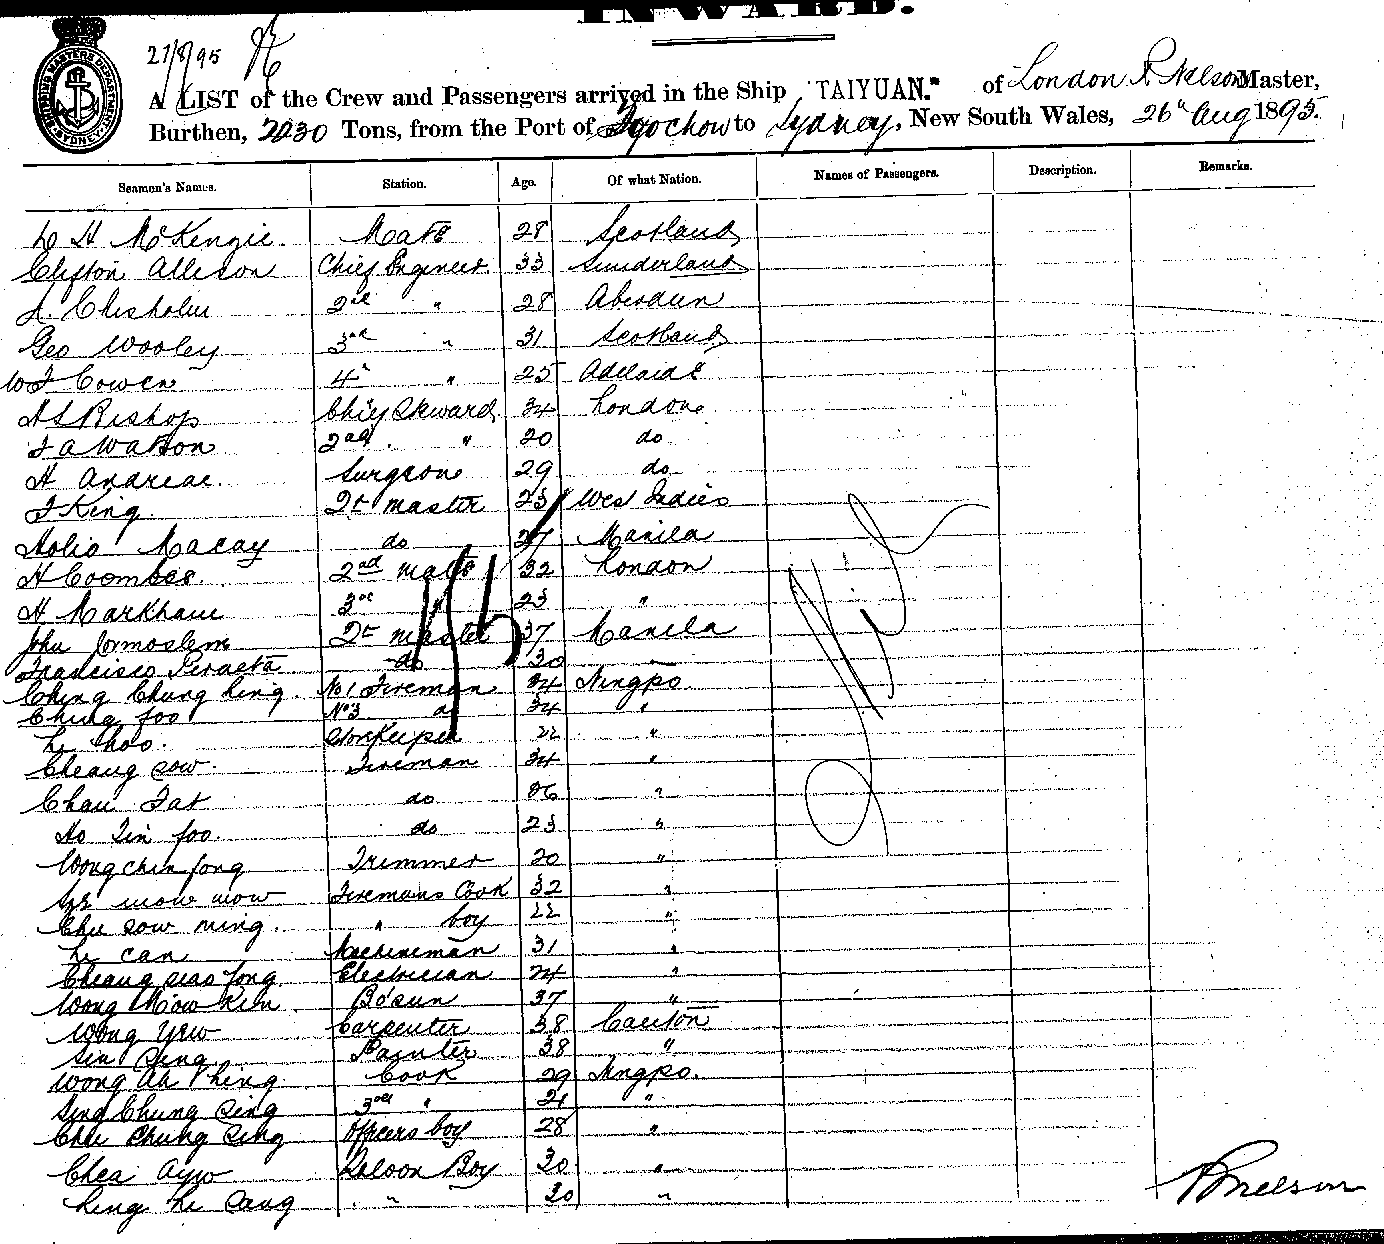 INWARD.
27/8/95
A LIST of the Crew and Passengers arrived in the Ship "TAIYUAN." of London R. Nelson Master,
Burthen, 2230 Tons, from the Port of Foochow to Sydney, New South Wales, 26th Aug 1895.
Seamen's Names. Station. Age. Of what Nation. Names of Passengers. Description. Remarks.
L H McKenzie. Mate 28 Scotland
Clifton Allison Chief Engineer 33 Sunderland
A. Chisholm 2nd " 28 Aberdeen
Geo Wooley 3rd " 31 Scotland
W J Cowen 4th " 25 Adelaide
H S Bishop Chief Steward 34 London
J A Watson 2nd " 20 do
H Andreae. Surgeon 29 do
J King 2r master 23 West Indies
Macay do 27 Manila
H Coombes. 2nd mate 32 London
H Markham 3rd " 23 "
John 2r master 37 Manila
Francisco Peraeta do 30
Ching Chung Ling. No 1 Fireman 34 Ningpo
Ching foo No 3 do 34 "
Le thoo. Storekeeper 22 "
Cheang sow. Fireman 34 "
Chan Fat do 26 "
Ho Tin foo. do 23 "
Wong chin fong Trimmer 20 "
mow mow Firemans Cook 32 "
Chu sow ning. " boy 22 "
Le can Machineman 31 "
Cheang seao fong Electrician 24 "
Wong Mow Kim Bo'sun 37 "
Wong Yew Carpenter 38 Canton
Sin Sing Painter 38 "
Wong Ah Ching Cook 29 Ningpo.
Sing Chung Sing 3rd " 21 "
Chu Chung Sing Officers boy 28 "
Chea Ayw Saloon Boy 30 "
Ling Le Sang " 20 "
R Nelson